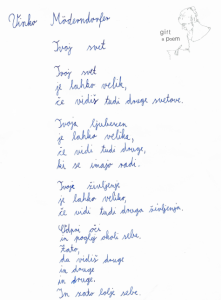 Vinko Möderndorfer
girl
a Poem
Tvoj svet
Tvoj svet
je lahko velik,
če vidiš tudi druge svetove.
Tvoja ljubezen
je lahko velika,
če vidi tudi druge,
ki se imajo radi.
Tvoje življenje
je lahko veliko,
če vidi tudi druga življenja.
Odpri oči
in poglej okoli sebe.
Zato,
da vidiš druge
in druge
in druge,
In zato bolje sebe.